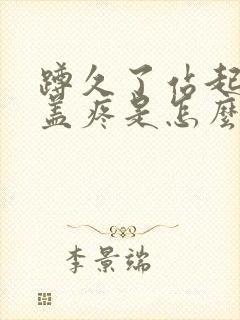 蹲久了站起
盖疼是怎麼
李景端